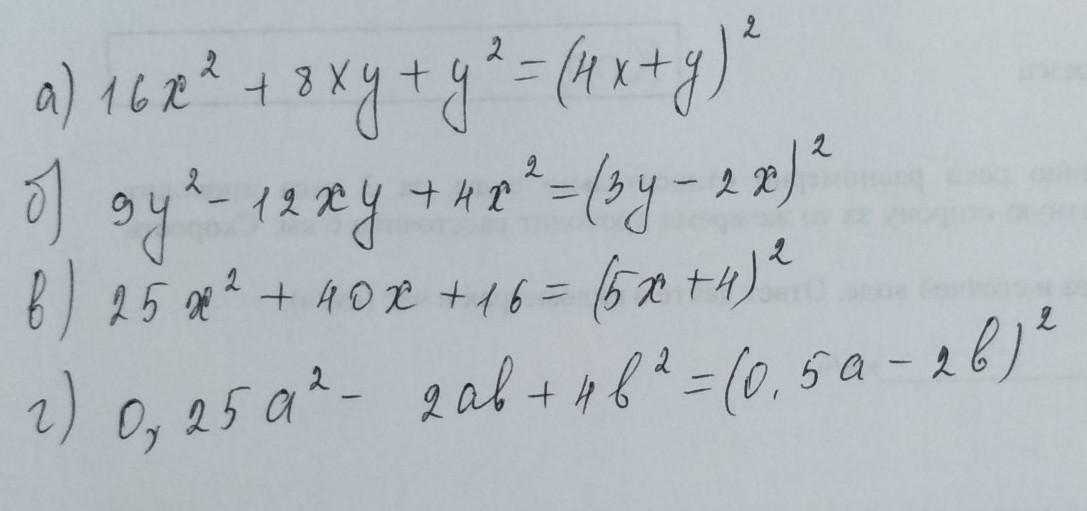 а) 16x² + 8xy + y² = (4x+y)²
б) 9y² - 12xy + 4x² = (3y - 2x)²
в) 25x² + 40x + 16 = (5x+4)²
г) 0,25a² - 2ab + 4b² = (0,5a - 2b)²